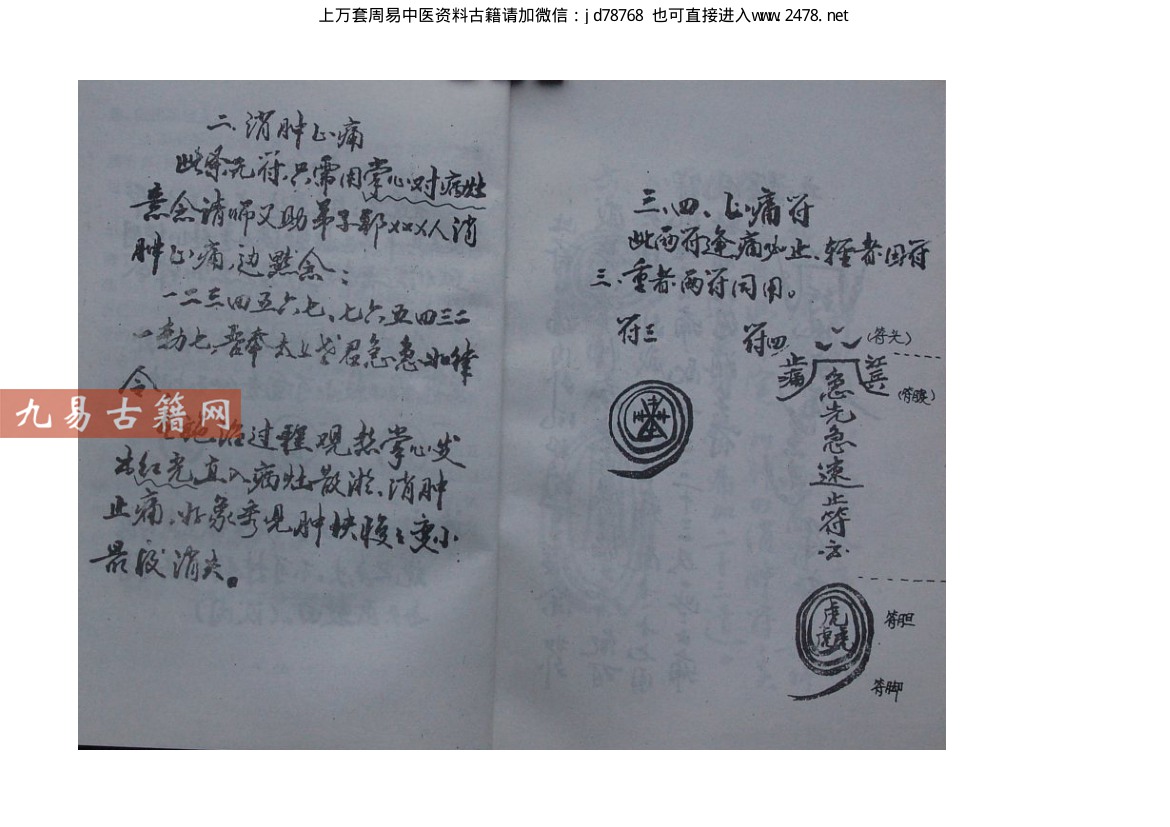 上万套周易中医资料古籍请加微信：jd78768 也可直接进入www.2478.net
二、消肿止痛
此条无符，只需用掌心对病灶
意念请师父助弟子郭×××人消
肿止痛，边默念：
一二三四五六七、七六五四三二
一勅七，吾奉太上老君急急如律
令
九易古籍网
施治过程观想掌心发
出红光直入病灶散淤、消肿
止痛，好象看见肿块慢慢变小
最后消失。
三、四、止痛符
此两符逢痛必止、轻者用符
三、重者两符同用。
符三
符四
(符头)
止痛
(符腹)
急
先
急
速
止
符
虎
虎虎
符胆
符脚